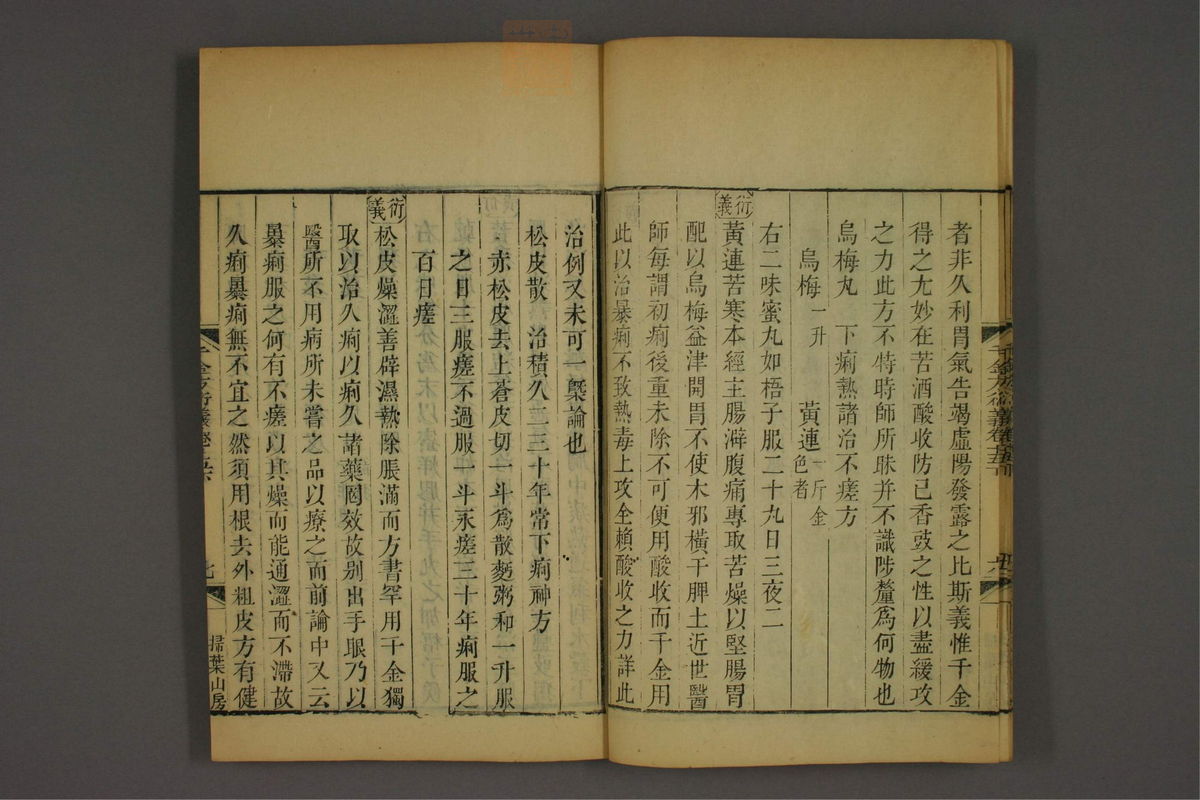 者非久利胃氣告竭虛陽發露之比斯義惟千金
得之尤妙在苦酒酸收防己香豉之性以盡緩攻
之力此方不特時師所昧并不識陟釐爲何物也
烏梅丸　下痢熱諸治不瘥方
烏梅一升　黃連一斤金色者
右二味蜜丸如梧子服二十丸日三夜二
衍義
黃連苦寒本經主腸澼腹痛專取苦燥以堅腸胃
配以烏梅益津開胃不使木邪橫干脾土近世醫
師每謂初痢後重未除不可便用酸收而千金用
此以治暴痢不致熱毒上攻全賴酸收之力詳此
治例又未可一槩論也
松皮散　治積久二三十年常下痢神方
赤松皮去上蒼皮切一斗爲散麪粥和一升服
之日三服瘥不過服一斗永瘥三十年痢服之
百日瘥
衍義
松皮燥澀善辟濕熱除脹滿而方書罕用千金獨
取以治久痢以痢久諸藥罔效故别出手眼乃以
醫所不用病所未嘗之品以療之而前論中又云
暴痢服之何有不瘥以其燥而能通澀而不滯故
久痢暴痢無不宜之然須用根去外粗皮方有健
掃葉山房